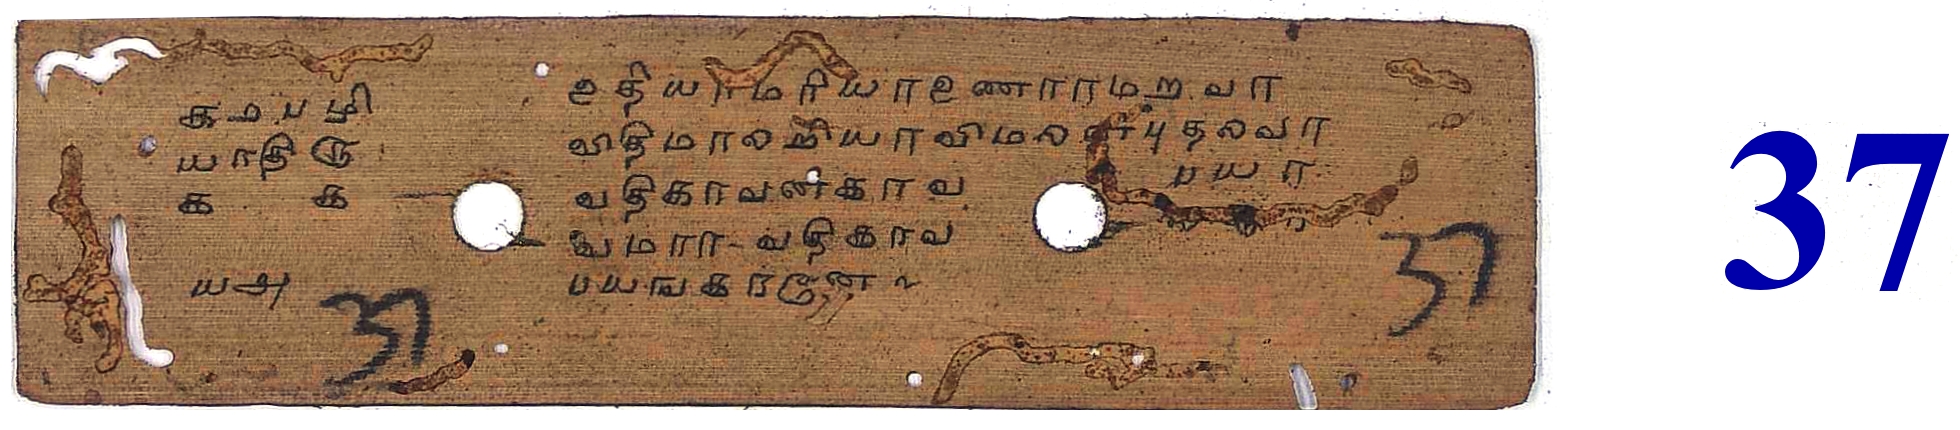 கமபழி
யாதிரு
க க
யஅ
உதியாமரியாஉணாராமறவா
விதிமாலறியாவிமலன்புதலவா
வதிகாவனகாவ பயா
வமரா வதிகாவ
பயஙகரனே
37
37
37